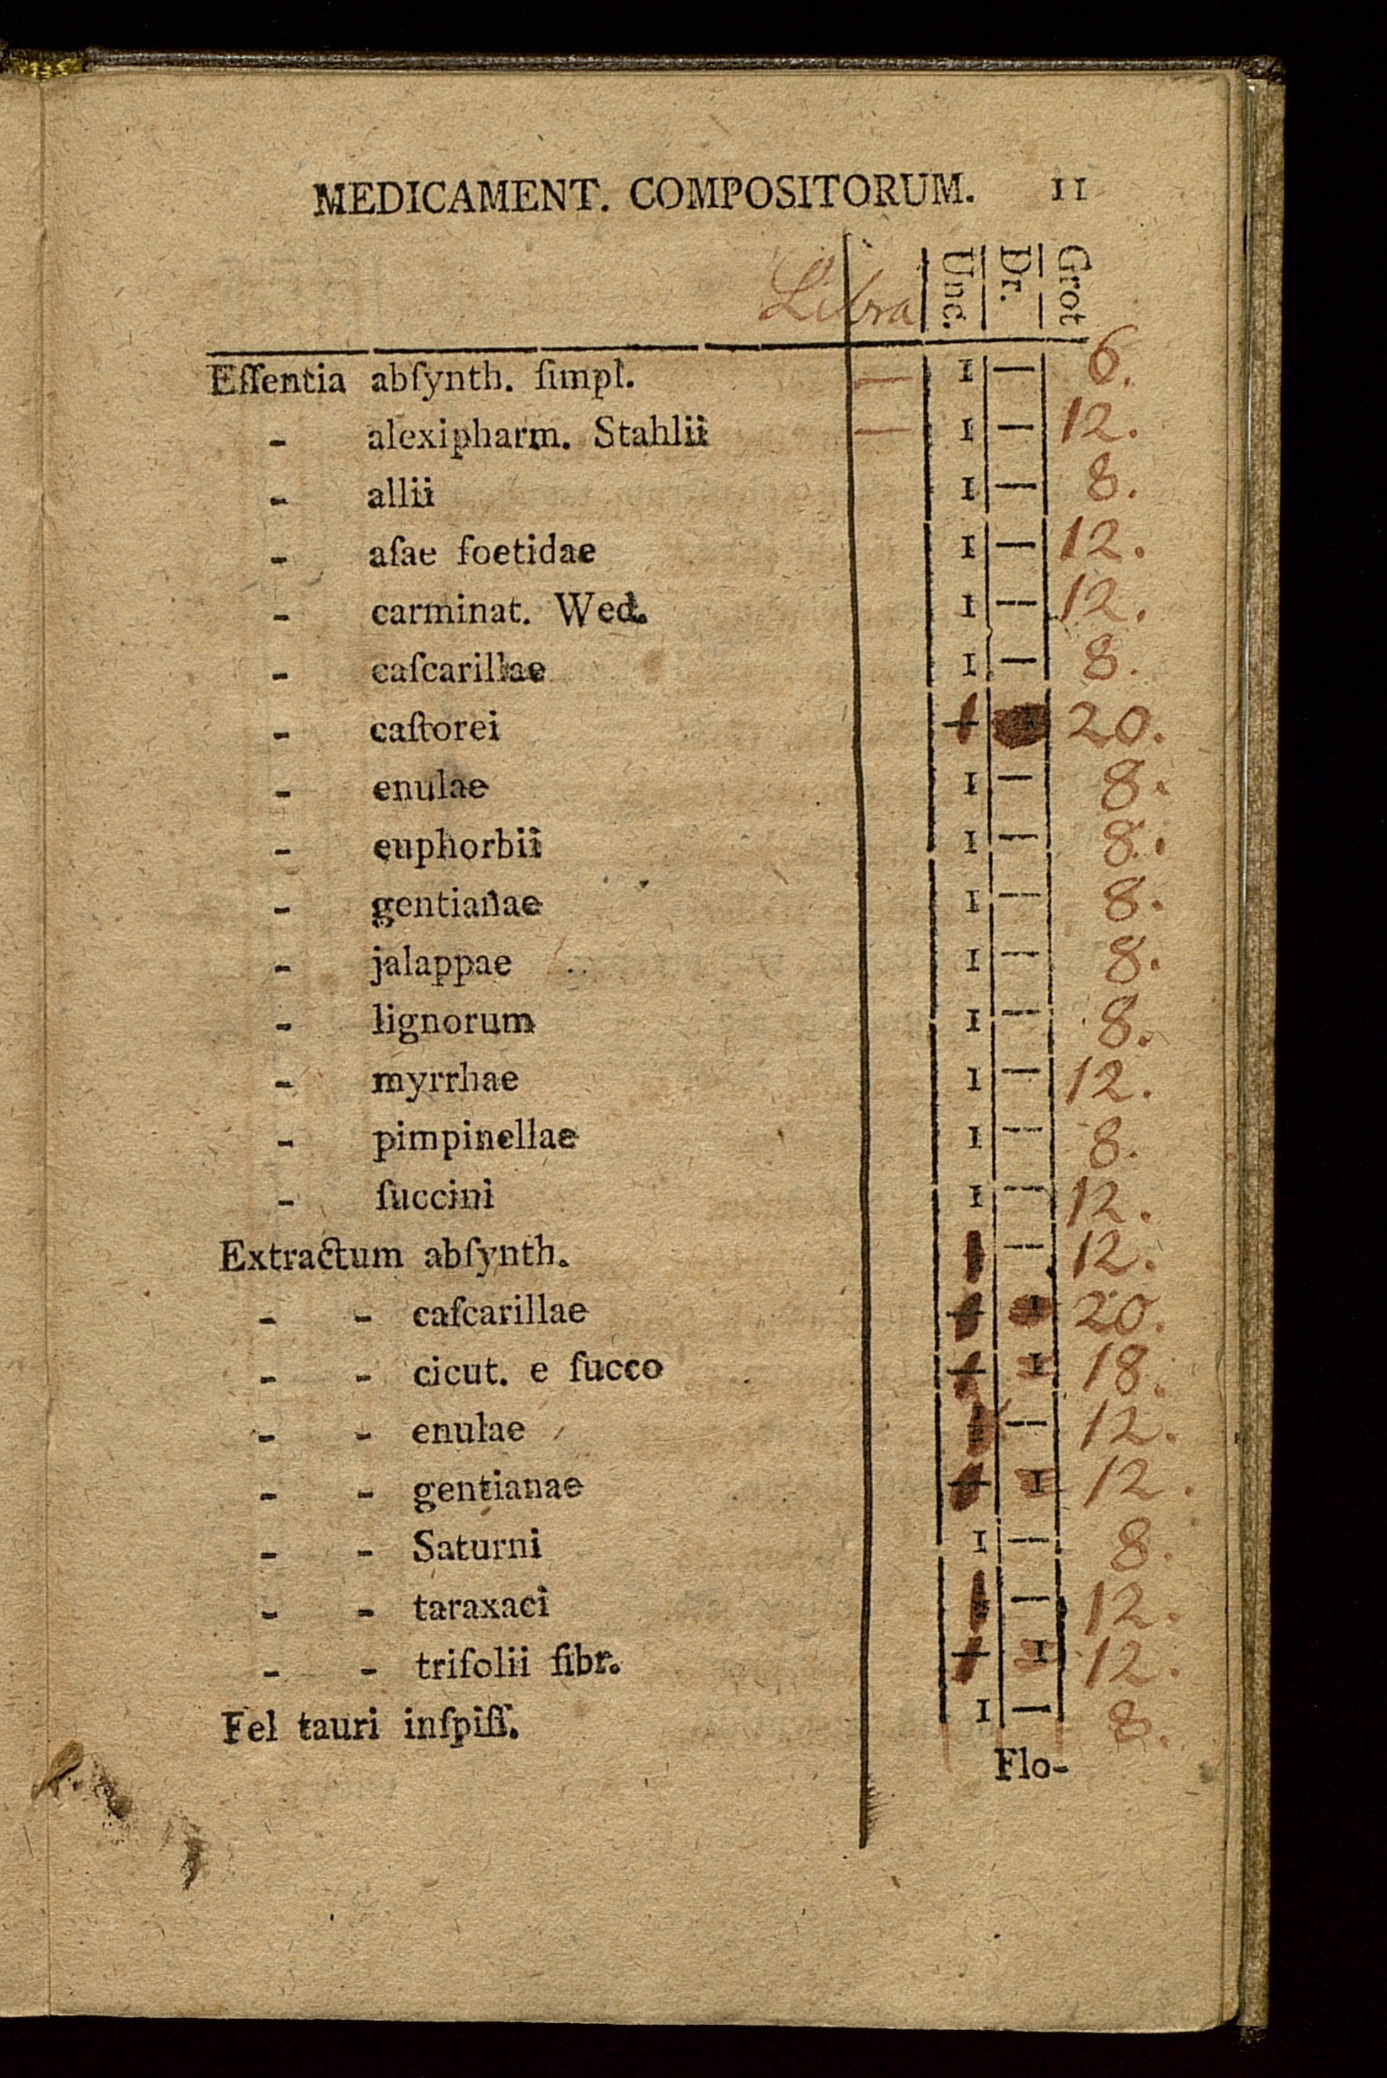 MEDICAMENT. COMPOSITORUM. 11
Libra Unc. Dr. Grot
Eſſentia abſynth. ſimpl. — 1 — 6.
- alexipharm. Stahlii — 1 — 12.
- allii 1 — 8.
- aſae foetidae 1 — 12.
- carminat. Wed. 1 — 12.
- caſcarillae 1 — 8.
- caſtorei 1 20.
- enulae 1 — 8.
- euphorbii 1 — 8.
- gentianae 1 — 8.
- jalappae 1 — 8.
- lignorum 1 — 8.
- myrrhae 1 — 12.
- pimpinellae 1 — 8.
- ſuccini 1 — 12.
Extractum abſynth. 1 — 12.
- - caſcarillae 1 1 20.
- - cicut. e ſucco 1 1 18.
- - enulae 1 — 12.
- - gentianae 1 1 12.
- - Saturni 1 — 8.
- - taraxaci 1 — 12.
- - trifolii fibr. 1 1 12.
Fel tauri inſpiſſ. 1 — 8.
Flo-